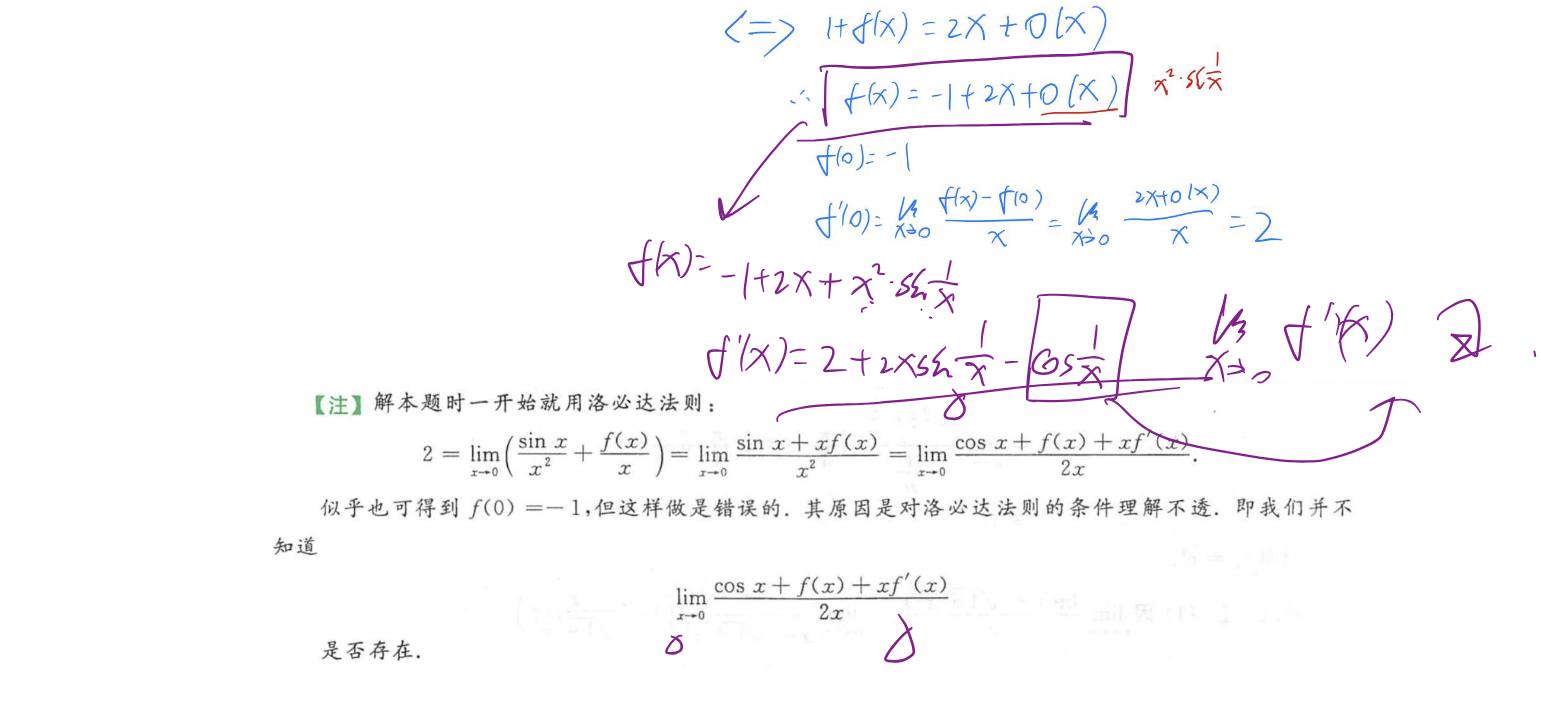 <=> 1+f(x)=2x+o(x)
∴ f(x)=-1+2x+o(x) x²·sin 1/x
f(0)=-1
f'(0)= lim x→0 (f(x)-f(0))/x = lim x→0 (2x+o(x))/x =2
f(x)= -1+2x+x²·sin 1/x
f'(x)=2+2x sin 1/x - cos 1/x lim x→0 f'(x)
【注】解本题时一开始就用洛必达法则:
2 = lim x→0 (sin x/x² + f(x)/x) = lim x→0 (sin x + xf(x))/x² = lim x→0 (cos x + f(x) + xf'(x))/2x.
似乎也可得到 f(0) =-1,但这样做是错误的. 其原因是对洛必达法则的条件理解不透. 即我们并不
知道
lim x→0 (cos x + f(x) + xf'(x))/2x
是否存在.